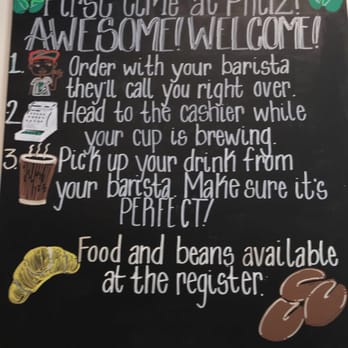 First time at Philz?
AWESOME! WELCOME!
1. Order with your barista
they'll call you right over.
2. Head to the cashier while
your cup is brewing.
3. Pick up your drink from
your barista. Make sure it's
PERFECT!
Food and beans available
at the register.